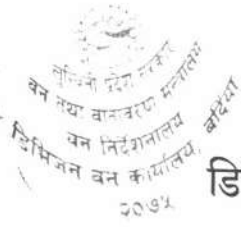 लुम्बिनी प्रदेश सरकार
वन तथा वातावरण मन्त्रालय
वन निर्देशनालय
डिभिजन वन कार्यालय, बर्दिया
२०७५
डि